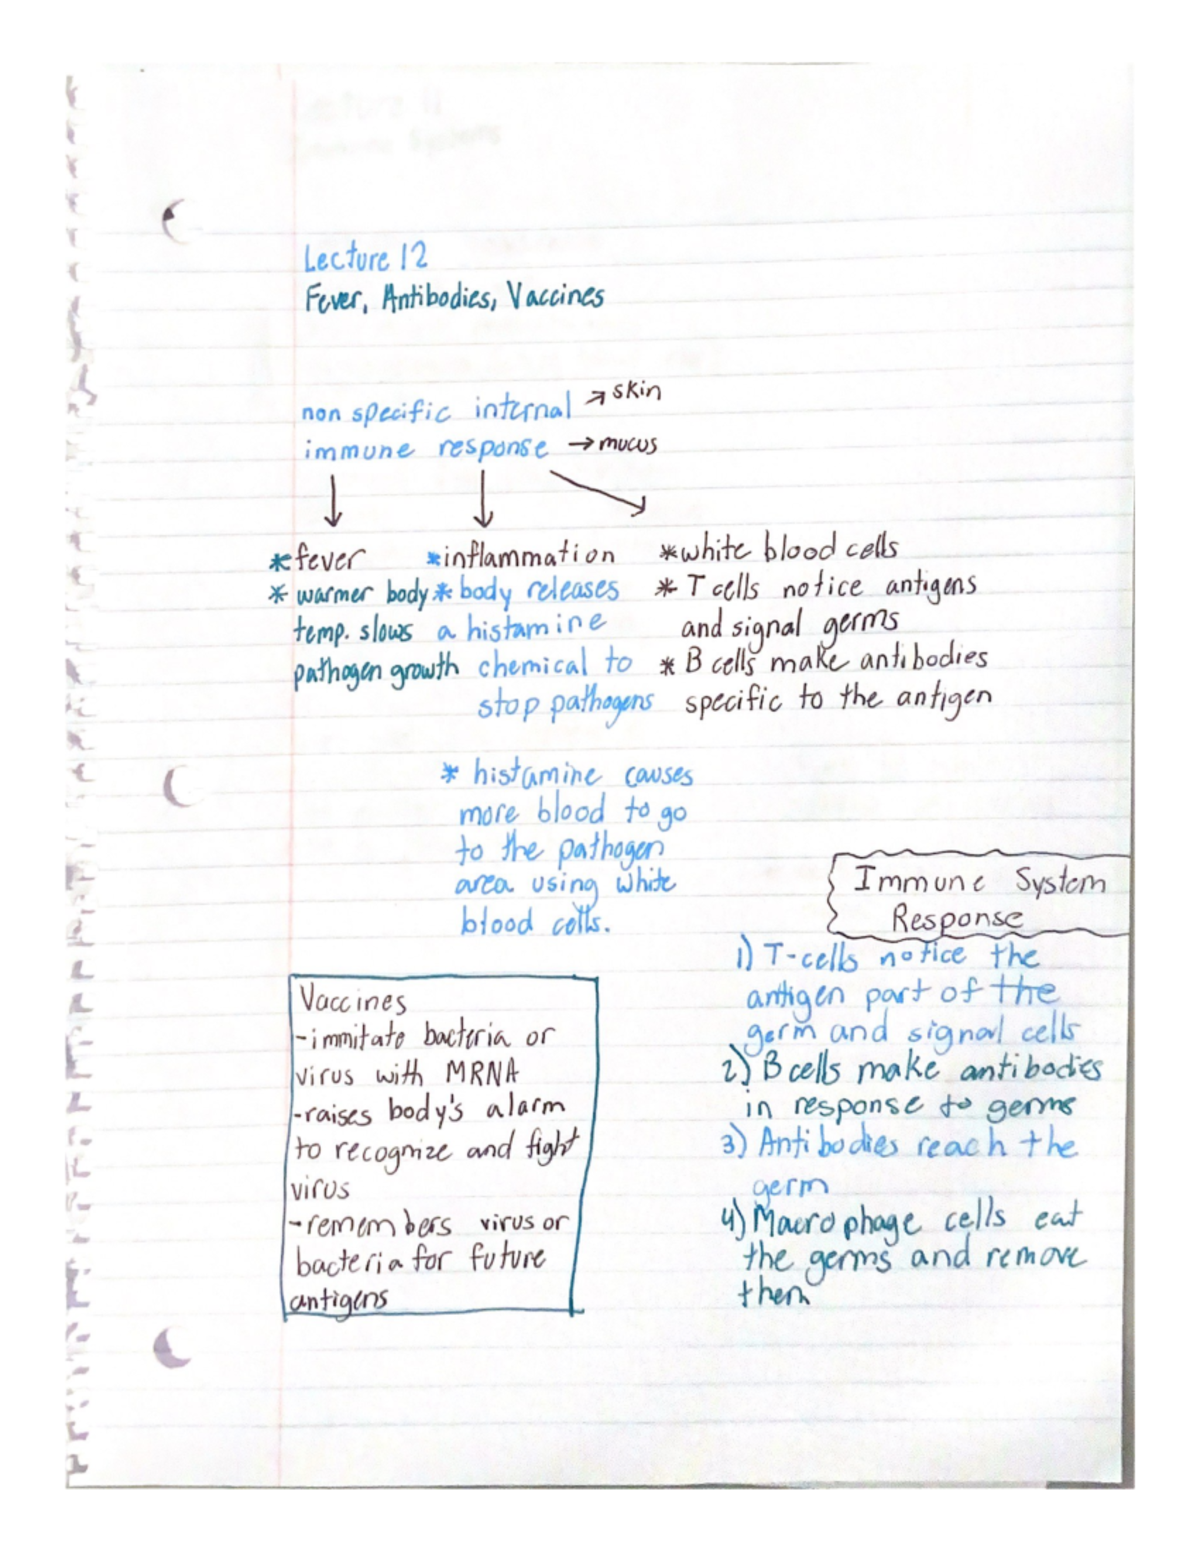 Lecture 12
Fever, Antibodies, Vaccines
non specific internal → skin
immune response → mucus
* fever
* warmer body
temp. slows
pathogen growth
* inflammation
* body releases
a histamine
chemical to
stop pathogens
* histamine causes
more blood to go
to the pathogen
area using white
blood cells.
* white blood cells
* T cells notice antigens
and signal germs
* B cells make antibodies
specific to the antigen
Vaccines
- immitate bacteria or
virus with MRNA
- raises body's alarm
to recognize and fight
virus
- remembers virus or
bacteria for future
antigens
Immune System
Response
1) T-cells notice the
antigen part of the
germ and signal cells
2) B cells make antibodies
in response to germs
3) Antibodies reach the
germ
4) Macrophage cells eat
the germs and remove
them